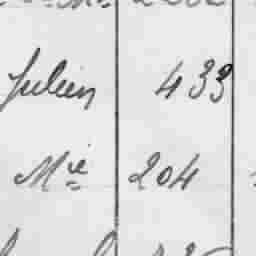 Julien 433
Mie 204